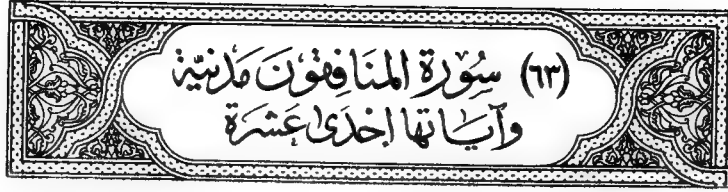 (٦٣) سُورَة المنَافِقونَ مَدنيَّة
وَآيَاتها اِحْدَىٰ عَشرَة